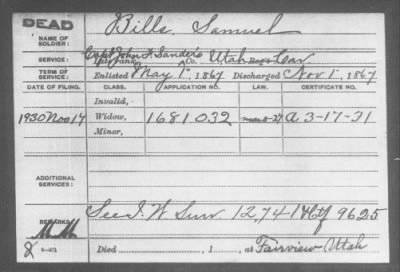 DEAD
NAME OF SOLDIER: Bills, Samuel
SERVICE: Capt John F. Sanders Co. Utah Cav
TERM OF SERVICE: Enlisted May 1, 1867 Discharged Nov 1, 1867
DATE OF FILING. CLASS. APPLICATION NO. LAW. CERTIFICATE NO.
Invalid,
1930 Nov 17 Widow, 1681032 A 3-17-31
Minor,
ADDITIONAL SERVICES:
See I. W Surv 12,741 Ctf 9625
REMARKS:
Died , 1 , at Fairview Utah